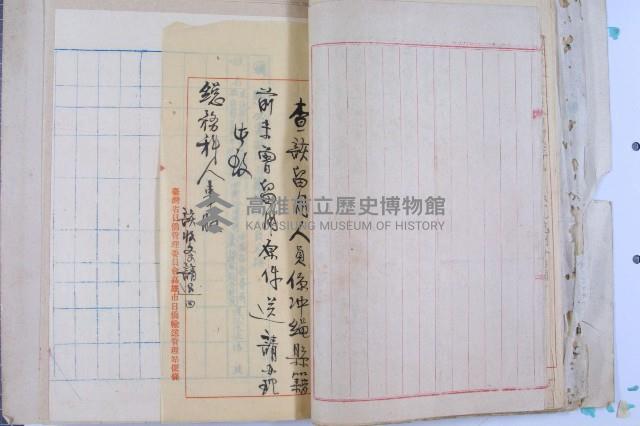 查該留用人員係沖繩縣籍
前未曾留用原件送請办理
此致
總務科人事股
該收条請退回
臺灣省日僑管理委員會高雄市日僑輸送管理站便條
高雄市立歷史博物館
KAOHSIUNG MUSEUM OF HISTORY